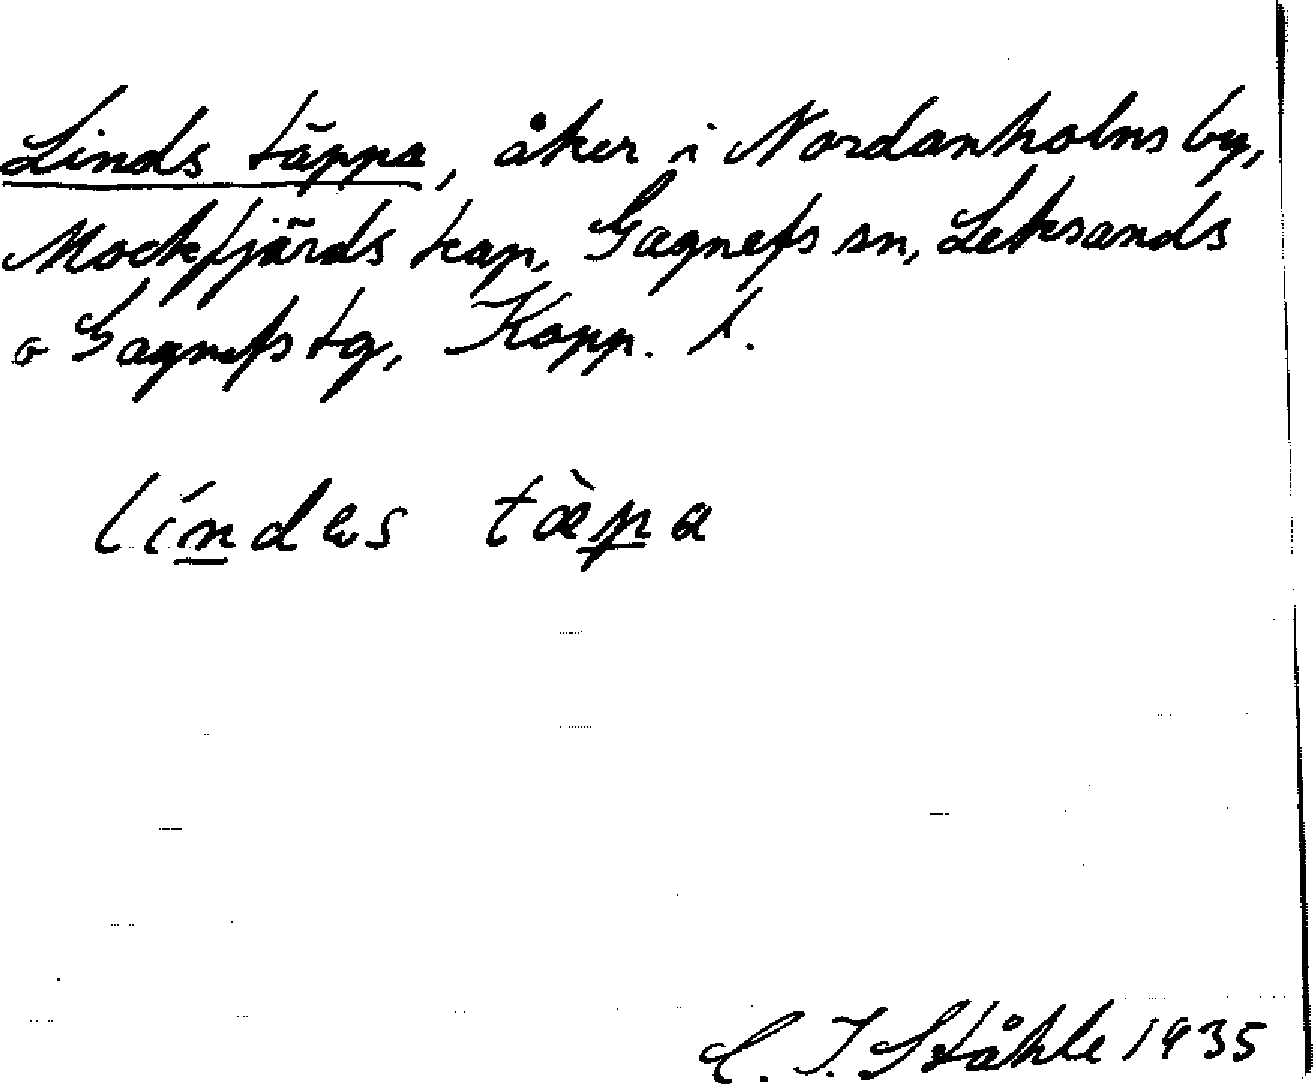 Linds täppa, åker i Nordanholns by,
Mockfjärds kap, Gagnefs sn, Leksands
o Gagnefs tg, Kopp. l.
líndes tæ̀pa
C. I. Ståhle 1935